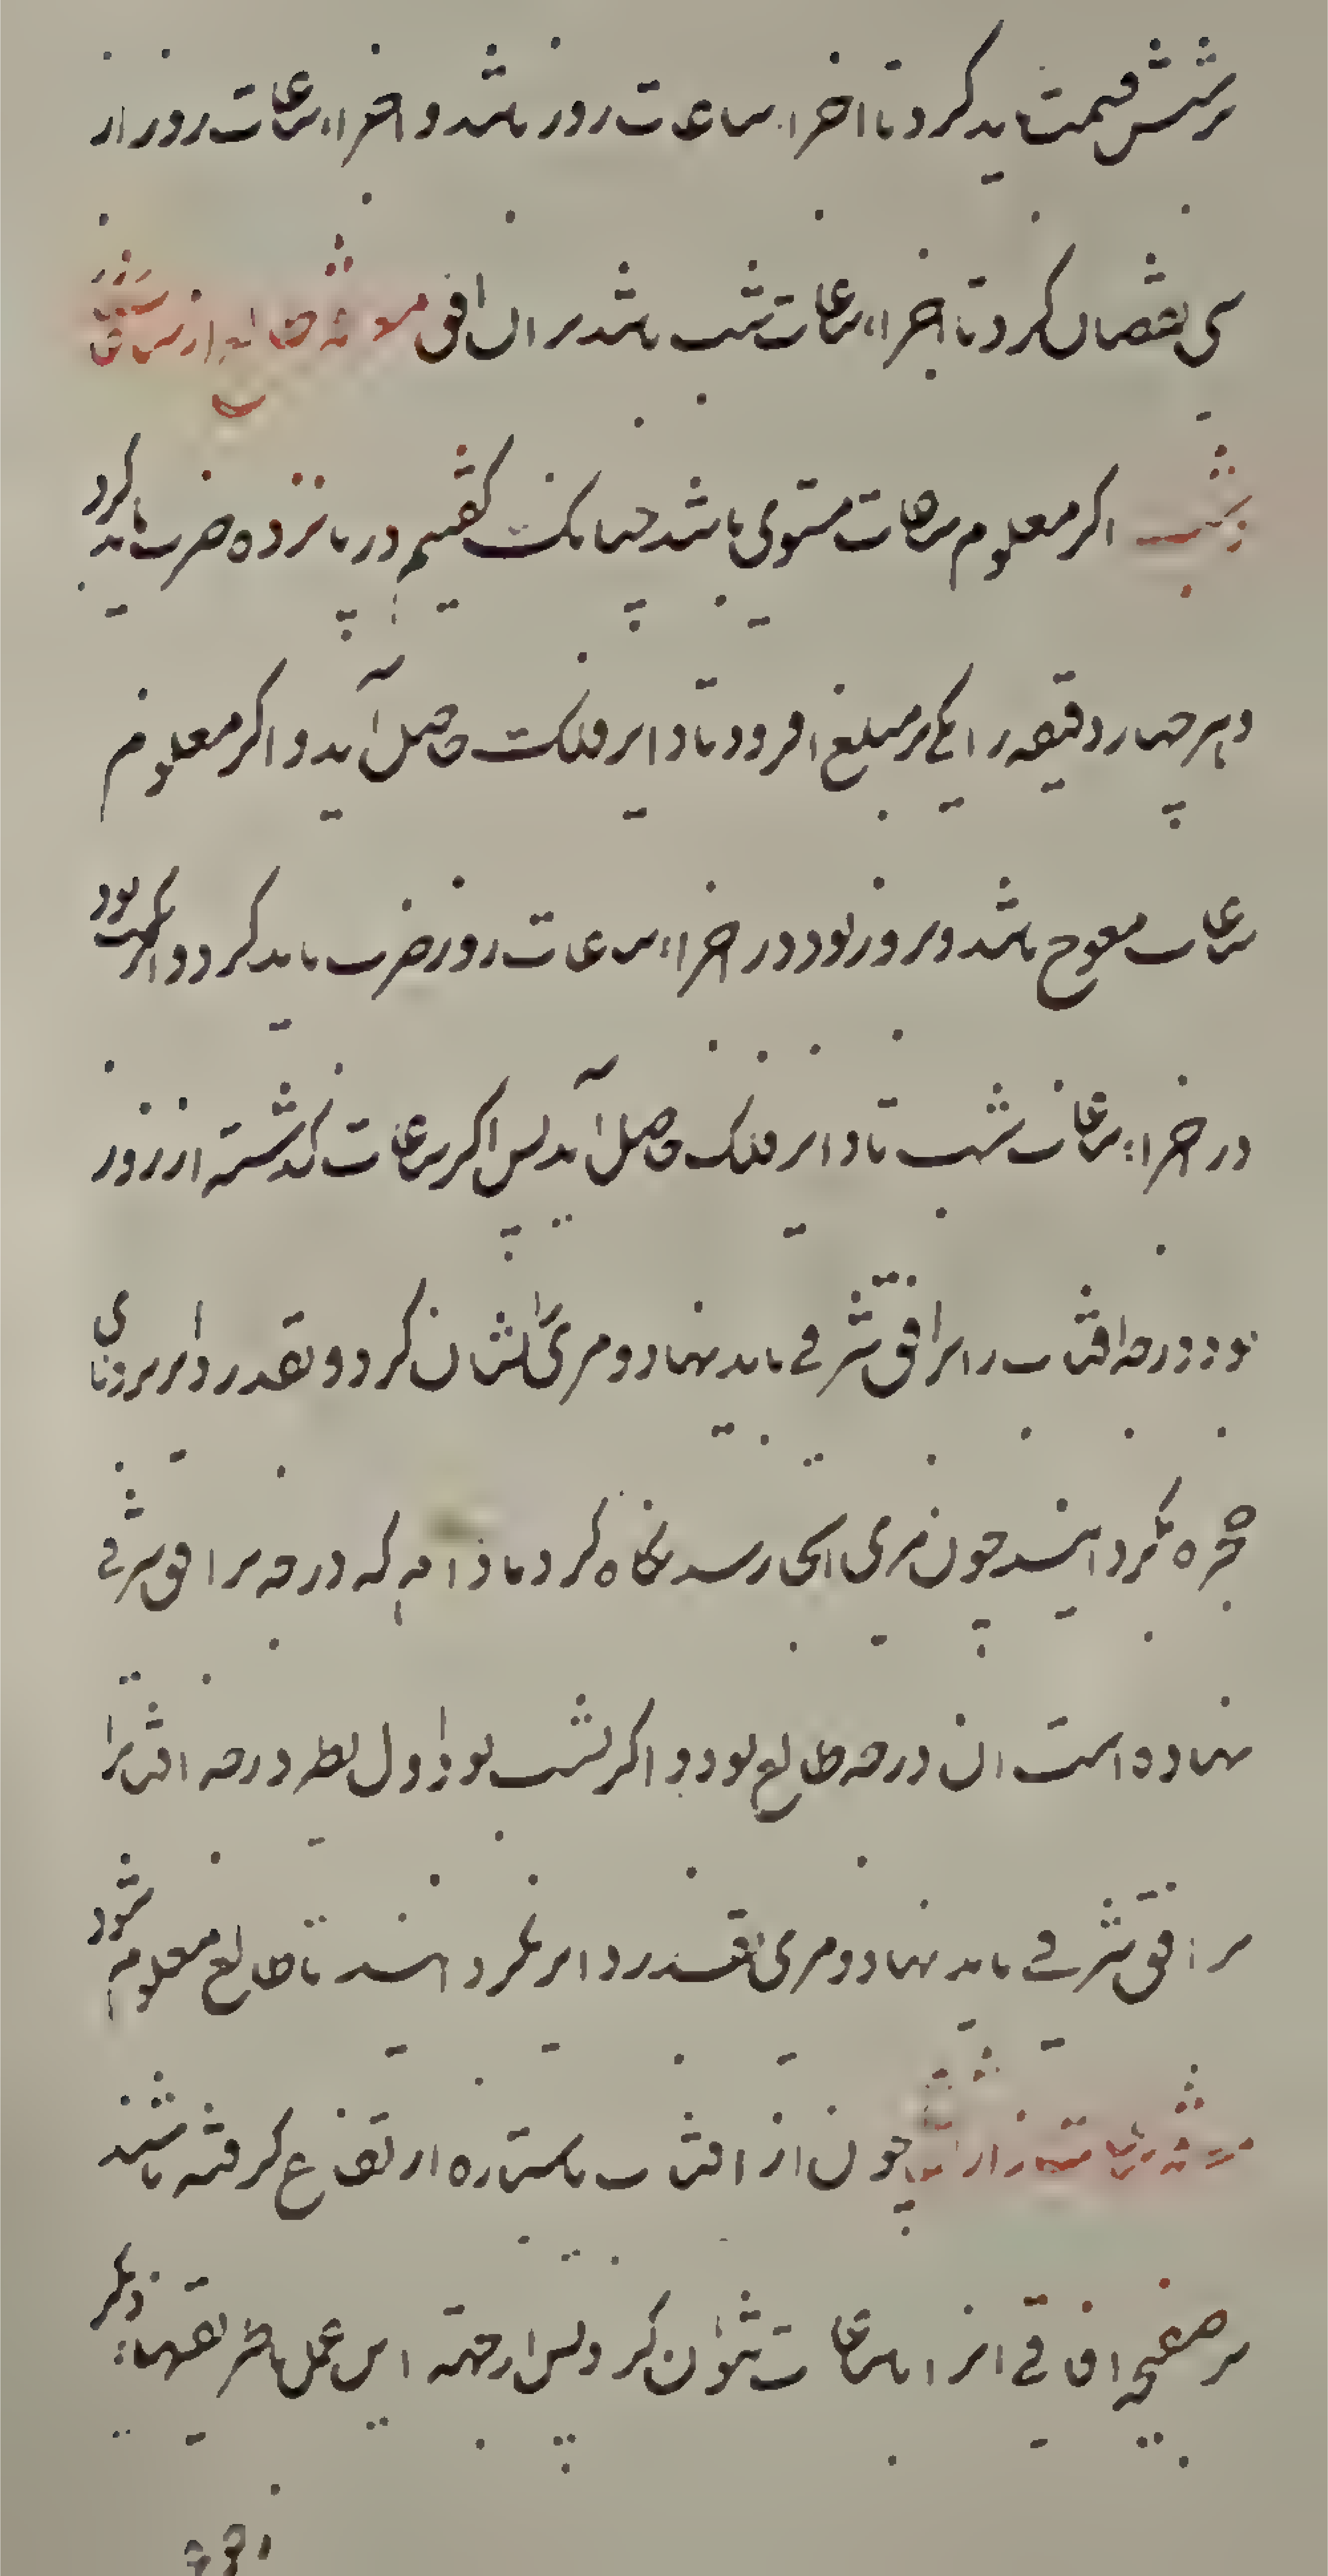 بر شش قسمت باید کرد تا اجزاء ساعات روز باشد و اجزاء ساعات روز از
سی نقصان کرد تا اجزاء ساعات شب باشد بر آن افق معرفة طالع از ساعات
شب اگر معلوم ساعات مستوی باشد چنانک گفتیم در پانزده ضرب باید کرد
و بهر چهار دقیقه را یکی بر مبلغ افزود تا دایر فلک حاصل آید و اگر معلوم
ساعات معوج باشد و بروز بود در اجزاء ساعات روز ضرب باید کرد و اگر بشب بود
در اجزاء ساعات شب تا دایر فلک حاصل آید پس اگر ساعات گذشته از روز
بود درجه آفتاب را بر افق شرقی باید نهاد و مری را نشان کرد و بقدر دایر بر توالی
حجره بگردانند چون مری آنجا رسد نگاه کرد تا کدام درجه بر افق شرقی
نهاده است آن درجه طالع بود و اگر بشب بود اول نظیر درجه آفتاب را
بر افق شرقی باید نهاد و مری بقدر دایر بگردانند تا طالع معلوم شود
معرفة ساعات از ارتفاع چون از آفتاب یا ستاره ارتفاع گرفته باشند
بر صفیحه آفاقی آنرا با ساعات نتوان کرد پس از جهة این عمل بطریقهاء دیگر